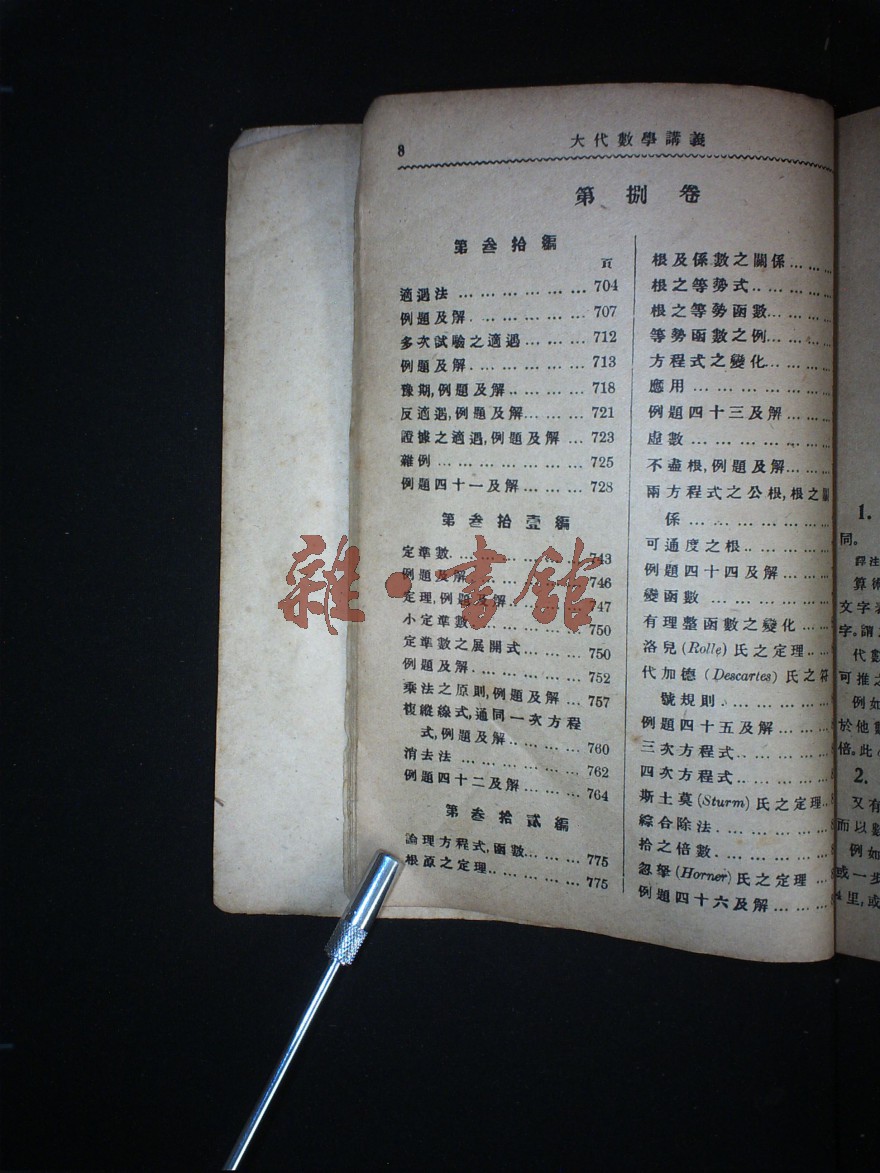 8
大代數學講義
第捌卷
第叁拾編
頁
適遇法 ... ... ... ... ... ... 704
例題及解 ... ... ... ... ... 707
多次試驗之適遇 ... ... ... 712
例題及解 ... ... ... ... ... 713
豫期,例題及解 ... ... ... ... 718
反適遇,例題及解 ... ... ... 721
證據之適遇,例題及解 ... 723
雜例 ... ... ... ... ... ... ... 725
例題四十一及解 ... ... ... 728
第叁拾壹編
定準數 ... ... ... ... ... ... 743
例題及解 ... ... ... ... ... 746
定理,例題及解 ... ... ... ... 747
小定準數 ... ... ... ... ... 750
定準數之展開式 ... ... ... 750
例題及解 ... ... ... ... ... 752
乘法之原則,例題及解 ... 757
複縱線式,通同一次方程
式,例題及解 ... ... ... ... 760
消去法 ... ... ... ... ... ... 762
例題四十二及解 ... ... ... 764
第叁拾貳編
論理方程式,函數 ... ... ... 775
根原之定理 ... ... ... ... ... 775
根及係數之關係 ... ...
根之等勢式 ... ... ... ...
根之等勢函數 ... ... ...
等勢函數之例 ... ... ...
方程式之變化 ... ... ...
應用 ... ... ... ... ... ...
例題四十三及解 ... ...
虛數 ... ... ... ... ... ...
不盡根,例題及解 ... ...
兩方程式之公根,根之關
係 ... ... ... ... ... ...
可通度之根 ... ... ... ...
例題四十四及解 ... ...
變函數 ... ... ... ... ...
有理整函數之變化 ... ...
洛兒(Rolle)氏之定理 ...
代加德(Descartes)氏之符
號規則 ... ... ... ... ...
例題四十五及解 ... ...
三次方程式 ... ... ... ...
四次方程式 ... ... ... ...
斯土莫(Sturm)氏之定理 ...
綜合除法 ... ... ... ... ...
拾之倍數 ... ... ... ... ...
忽拏(Horner)氏之定理 ...
例題四十六及解 ... ... ...
1.
同。
釋注
算術
文字
字。謂
代數
可推之
例如
於他數
倍。此
2.
又有
而以數
例如
或一步
里,或
雜·書館